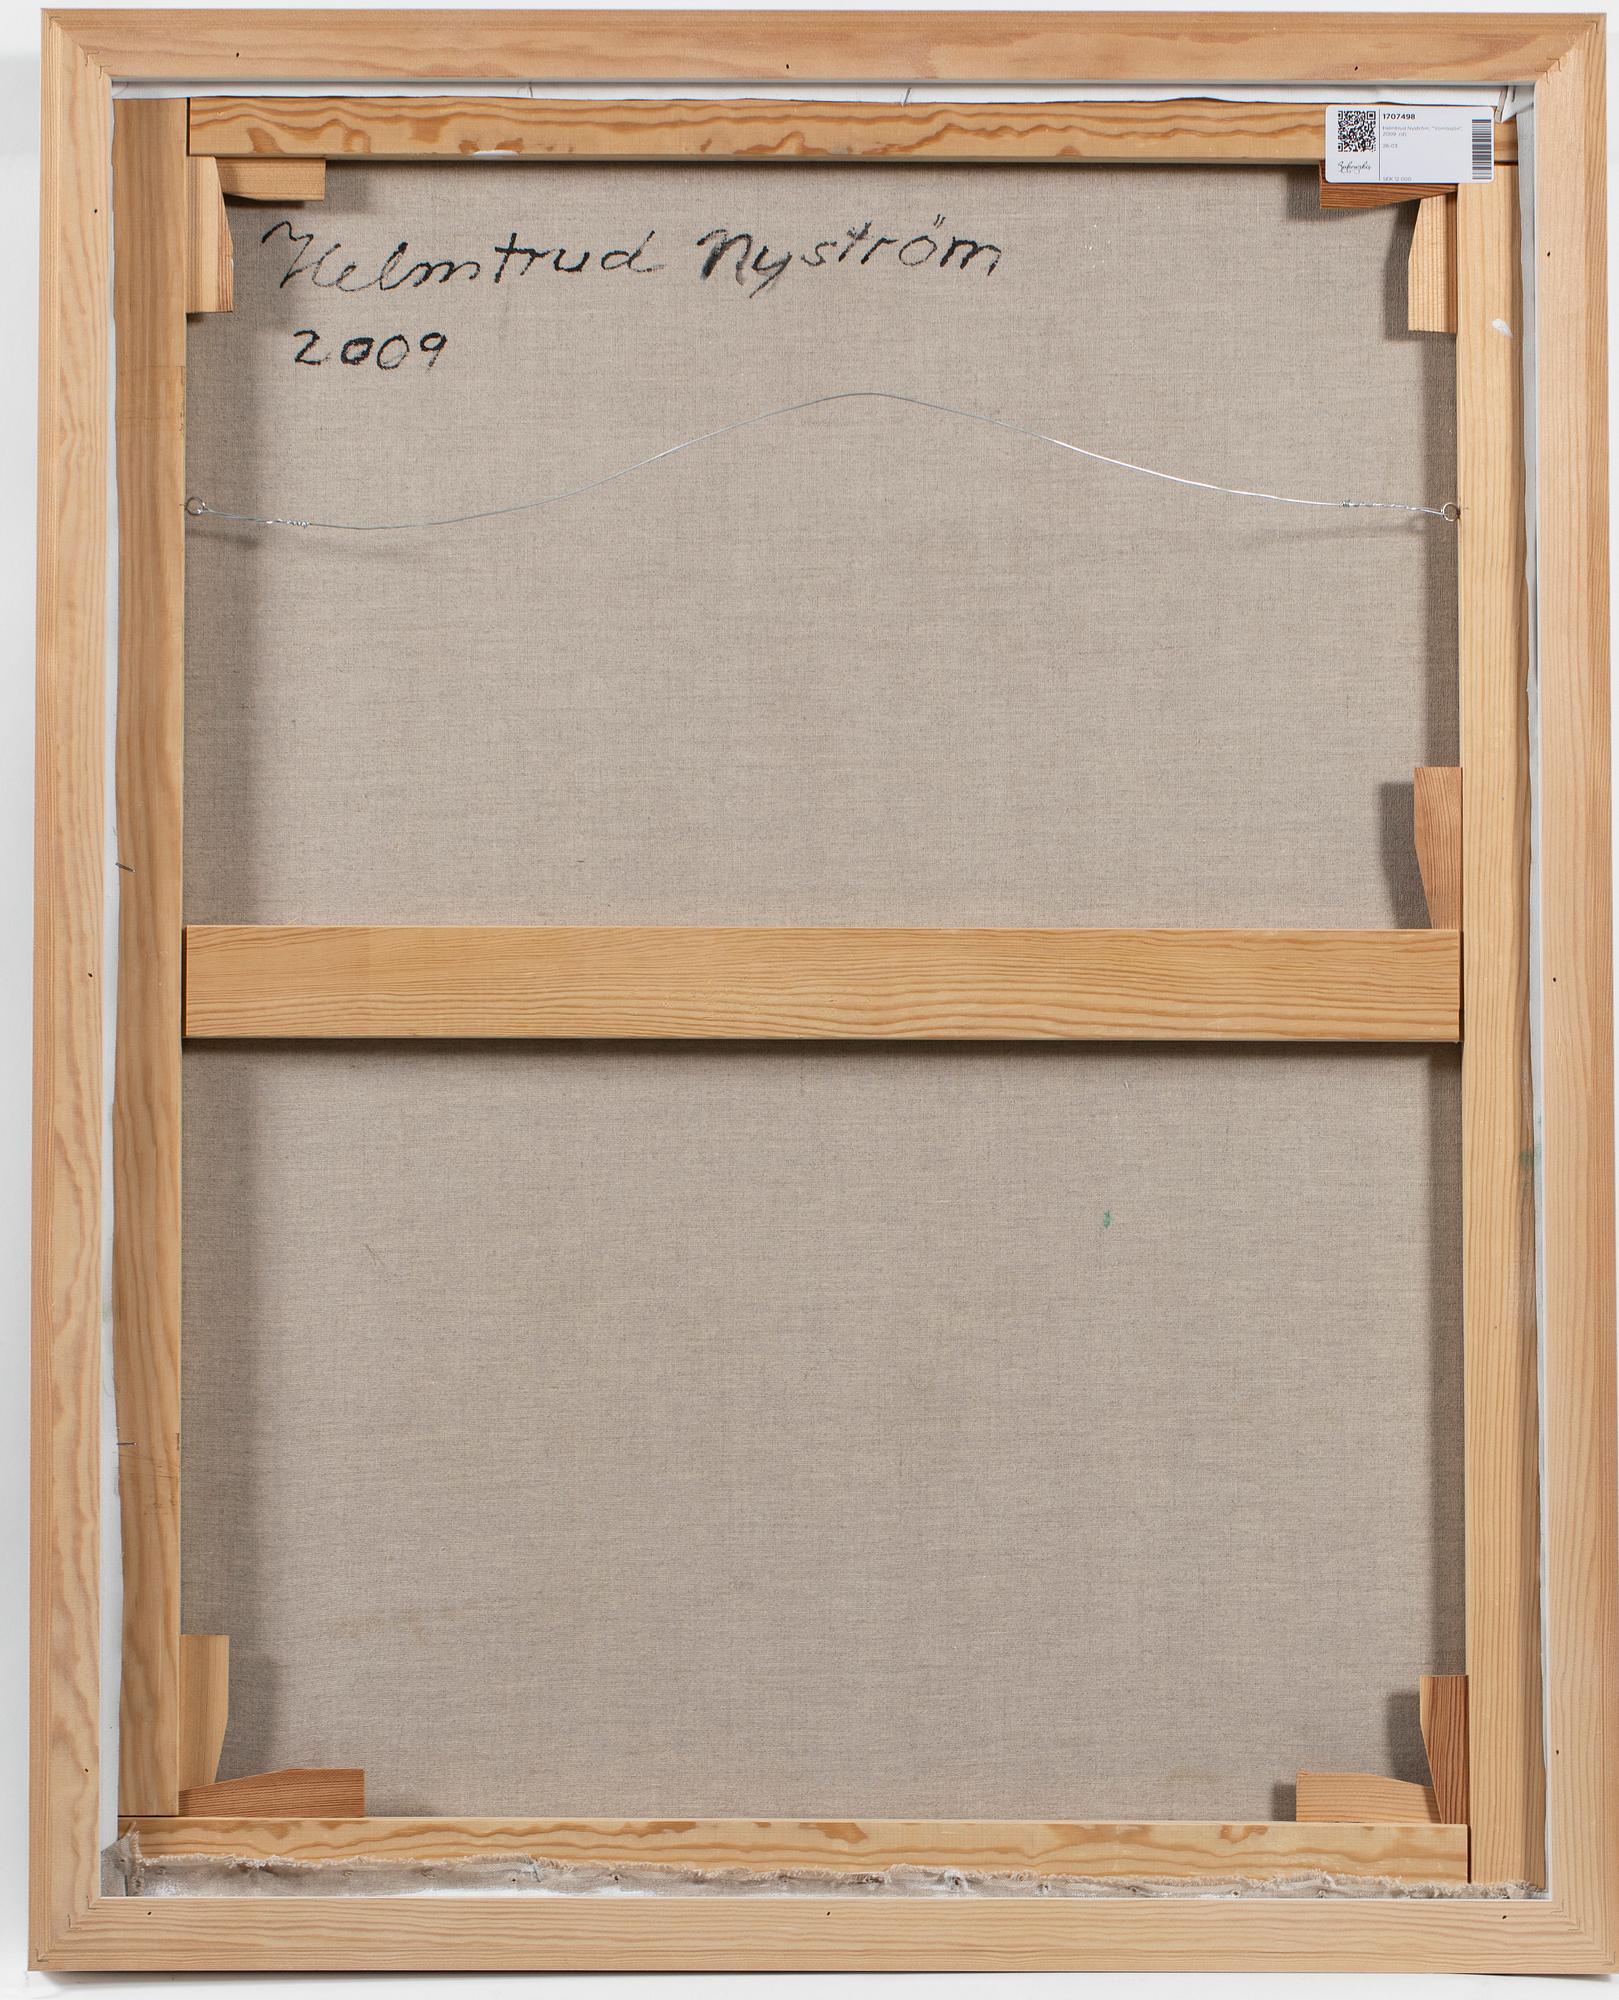 1707498
Helmtrud Nyström,
2009. (d)
26-03
Bukowskis
SEK 12 000
Helmtrud Nyström
2009